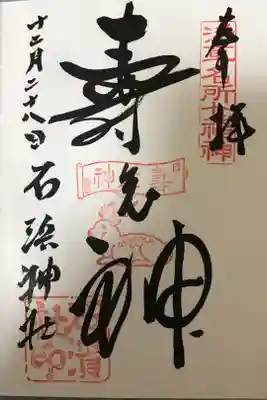 奉拝
浅草名所七福神
寿老神
壽老神
十二月二十八日 石浜神社